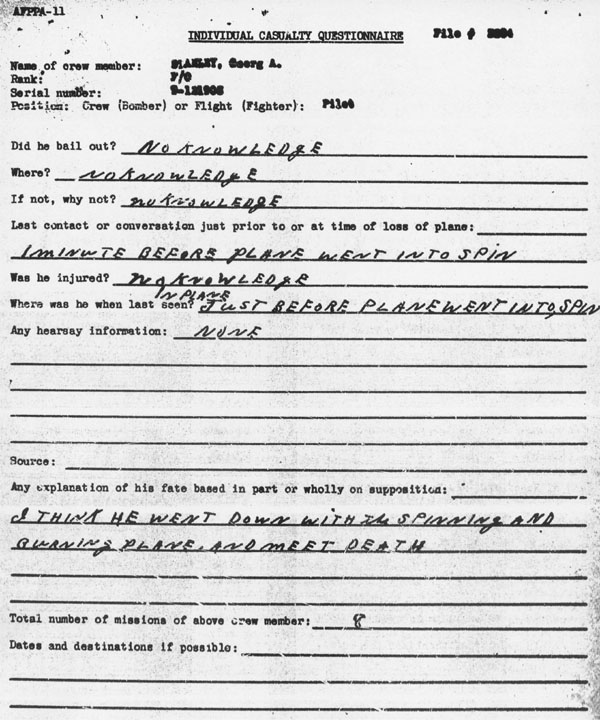 AFPPA-11
INDIVIDUAL CASUALTY QUESTIONNAIRE File #
Name of crew member: STANLEY, Georg A.
Rank: F/O
Serial number:
Position: Crew (Bomber) or Flight (Fighter): Pilot
Did he bail out? NO KNOWLEDGE
Where? NO KNOWLEDGE
If not, why not? NO KNOWLEDGE
Last contact or conversation just prior to or at time of loss of plane:
1 MINUTE BEFORE PLANE WENT INTO SPIN
Was he injured? NO KNOWLEDGE
IN PLANE
Where was he when last seen? JUST BEFORE PLANE WENT INTO SPIN
Any hearsay information: NONE
Source:
Any explanation of his fate based in part or wholly on supposition:
I THINK HE WENT DOWN WITH the SPINNING AND
BURNING PLANE, AND MEET DEATH
Total number of missions of above crew member: 8
Dates and destinations if possible: